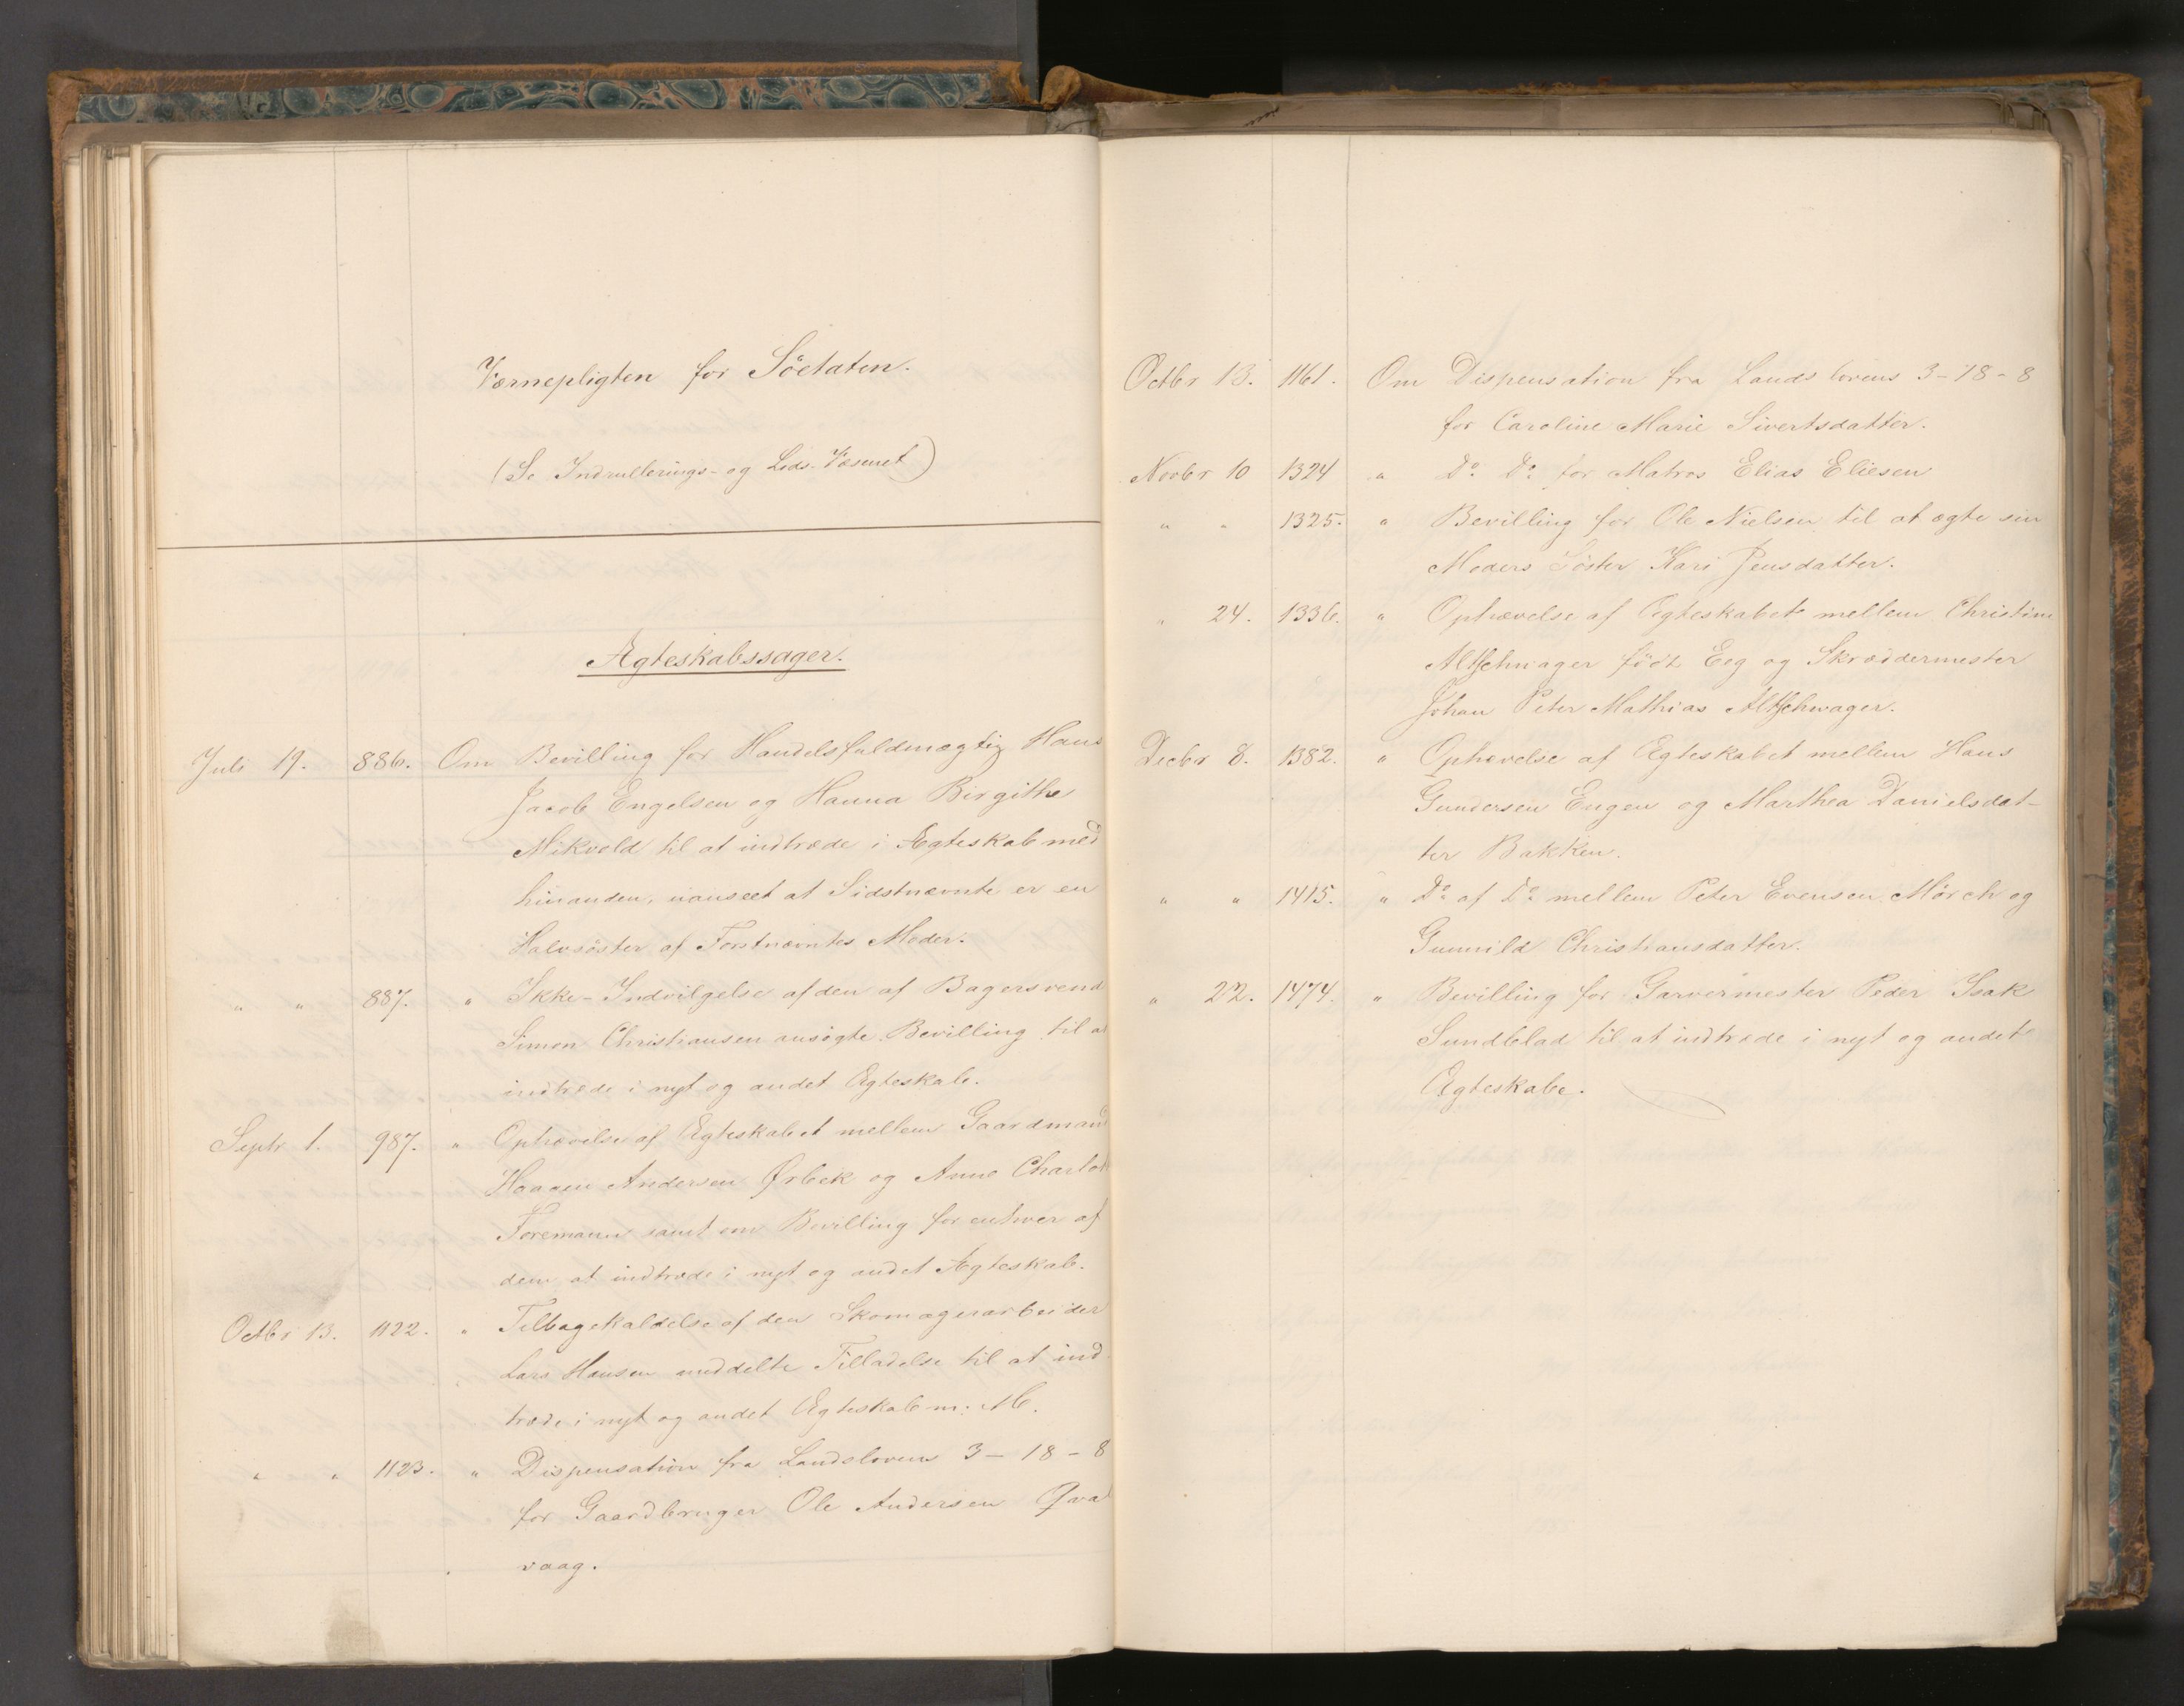 Værnepligten for Söetaten.
(Se Indrullerings- og Leds-Væsenet)
Ægteskabssager.
Juli 19. 886. Om Bevilling for Handelsfuldmægtig Hans
Jacob Engelsen og Hanna Birgithe
Mikvold til at indtræde i Ægteskab med
hinanden, uanseet at Sidstnævnte er en
Halvsöster af Førstnævntes Moder.
" " 887. " Ikke-Indvilgelse af den af Bagersvend
Simon Christiansen ansögte Bevilling til at
indtræde i nyt og andet Ægteskab.
Septr 1. 987. " Ophævelse af Ægteskabet mellem Gaardmand
Haagen Andersen Ørbek og Anne Charlot
Foremann samt om Bevilling for enhver af
dem at indtræde i nyt og andet Ægteskab.
Octbr 13. 1122. " Tilbagekaldelse af den Skomagerarbeider
Lars Hansen meddelte Tilladelse til at ind-
træde i nyt og andet Ægteskab m. M.
" " 1123. " Dispensation fra Landslovens 3-18-8
for Gaardbruger Ole Andersen Qval
vaag.
Octbr 13. 1161. Om Dispensation fra Landslovens 3-18-8
for Caroline Marie Sivertsdatter.
Novbr 10 1324 " Do Do for Matros Elias Eliesen
" " 1325. " Bevilling for Ole Nielsen til at ægte sin
Moders Söster Kari Jensdatter.
" 24. 1336. " Ophævelse af Ægteskabet mellem Christine
Altschwager född Eeg og Skræddermester
Johan Peter Mathias Altschwager.
Decbr 8. 1382. " Ophævelse af Ægteskabet mellem Hans
Gundersen Engen og Marthea Danielsdat-
ter Bakken.
" " 1415. " Do af Do mellem Peter Evensen Mörch og
Gunnild Christiansdatter.
" 22. 1474. " Bevilling for Garvermester Peder Isak
Sundblad til at indtræde i nyt og andet
Ægteskabe.